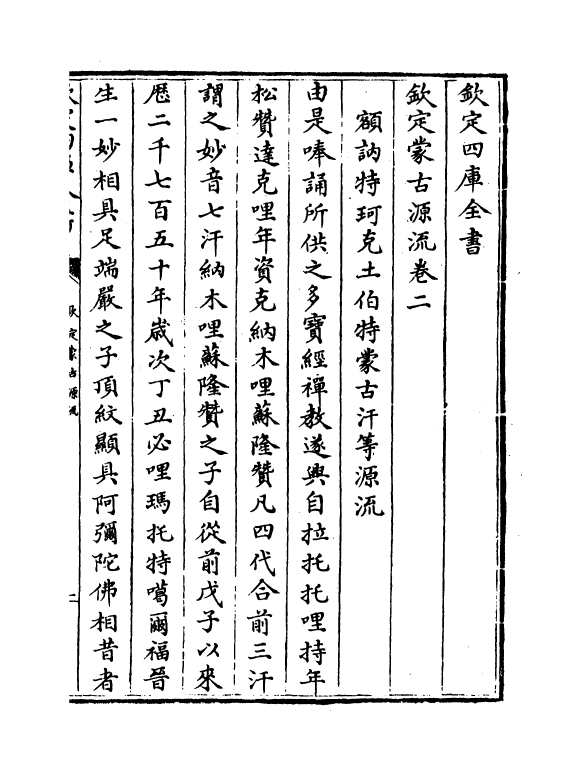 欽定四庫全書
欽定蒙古源流卷二
額訥特珂克土伯特蒙古汗等源流
由是唪誦所供之多寶經禪教遂興自拉托托哩持年
松贊達克哩年資克納木哩蘇隆贊凡四代合前三汗
謂之妙音七汗納木哩蘇隆贊之子自從前戊子以來
歴二千七百五十年歳次丁丑必哩瑪托特噶爾福晉
生一妙相具足端嚴之子頂紋顯具阿彌陀佛相昔者
欽定蒙古源流